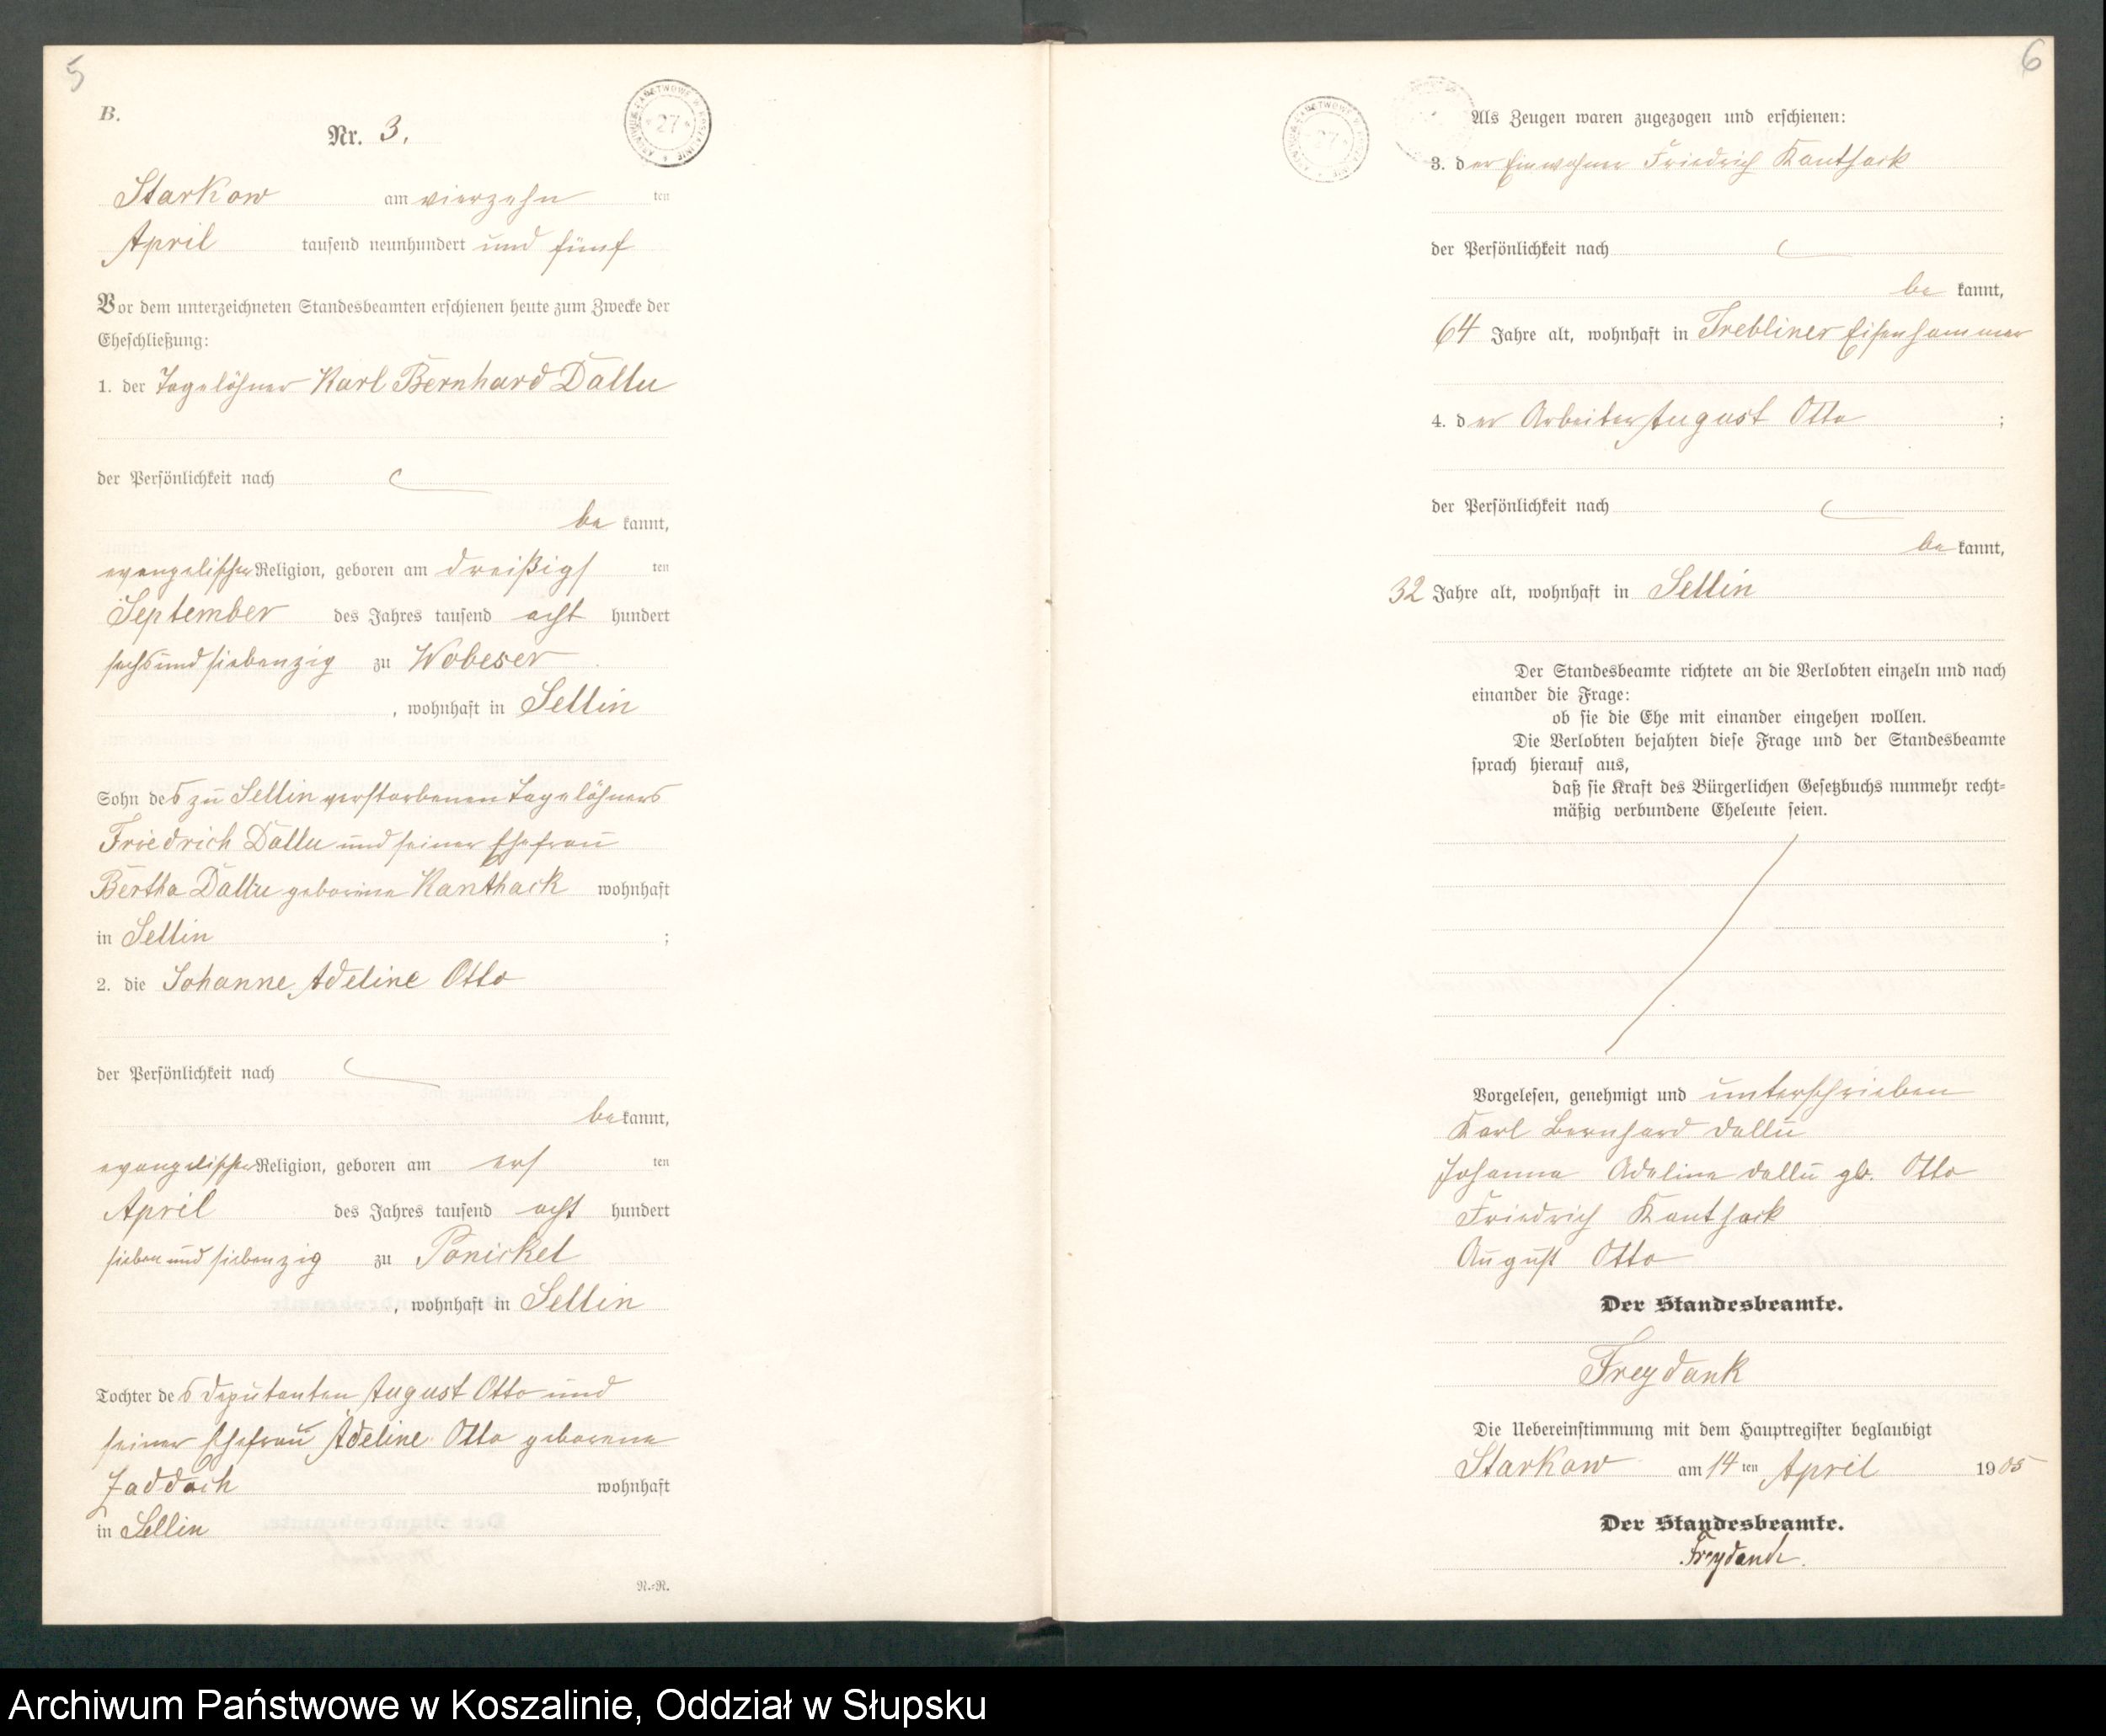 5
B.
Nr. 3.
Starkow am vierzehn ten
April tausend neunhundert und fünf
Vor dem unterzeichneten Standesbeamten erschienen heute zum Zwecke der
Eheschließung:
1. der Tagelöhner Karl Bernhard Dallu
der Persönlichkeit nach
be kannt,
evangelischer Religion, geboren am dreißigs ten
September des Jahres tausend acht hundert
sechs und siebenzig zu Wobeser
, wohnhaft in Sellin
Sohn des zu Sellin verstorbenen Tagelöhners
Friedrich Dallu und seiner Ehefrau
Bertha Dallu geborene Kanthack wohnhaft
in Sellin ;
2. die Johanne Adeline Otto
der Persönlichkeit nach
be kannt,
evangelischer Religion, geboren am ers ten
April des Jahres tausend acht hundert
sieben und siebenzig zu Ponickel
, wohnhaft in Sellin
Tochter des Deputanten August Otto und
seiner Ehefrau Adeline Otto geborene
Jaddach wohnhaft
in Sellin
N.-R.
6
Als Zeugen waren zugezogen und erschienen:
3. der Einwohner Friedrich Kanthack
der Persönlichkeit nach
be kannt,
64 Jahre alt, wohnhaft in Trebliner Eisenhammer
4. der Arbeiter August Otto ;
der Persönlichkeit nach
be kannt,
32 Jahre alt, wohnhaft in Sellin
Der Standesbeamte richtete an die Verlobten einzeln und nach
einander die Frage:
ob sie die Ehe mit einander eingehen wollen.
Die Verlobten bejahten diese Frage und der Standesbeamte
sprach hierauf aus,
daß sie Kraft des Bürgerlichen Gesetzbuchs nunmehr recht-
mäßig verbundene Eheleute seien.
Vorgelesen, genehmigt und unterschrieben
Karl Bernhard Dallu
Johanne Adeline Dallu gb. Otto
Friedrich Kanthack
August Otto
Der Standesbeamte.
Freydank
Die Uebereinstimmung mit dem Hauptregister beglaubigt
Starkow am 14 ten April 1905
Der Standesbeamte.
Freydank.
Archiwum Państwowe w Koszalinie, Oddział w Słupsku